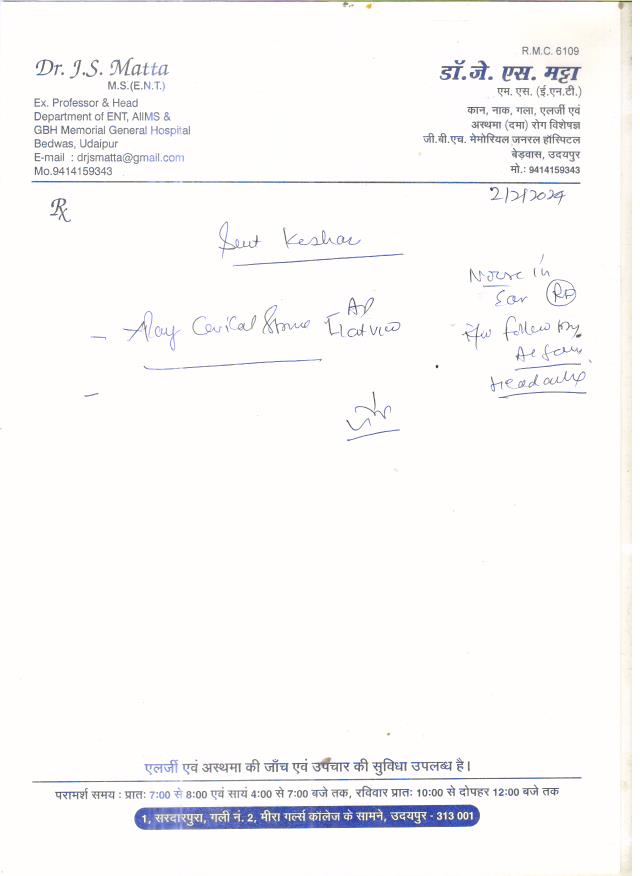 R.M.C. 6109
Dr. J.S. Matta
M.S.(E.N.T.)
Ex. Professor & Head
Department of ENT, AIIMS &
GBH Memorial General Hospital
Bedwas, Udaipur
E-mail : drjsmatta@gmail.com
Mo.9414159343
डॉ.जे. एस. मट्टा
एम. एस. (ई.एन.टी.)
कान, नाक, गला, एलर्जी एवं
अस्थमा (दमा) रोग विशेषज्ञ
जी.बी.एच. मेमोरियल जनरल हॉस्पिटल
बेड़वास, उदयपुर
मो.: 9414159343
2/2/2024
Rx
Smt Keshar
in
Ear
follow by
Headache
AP
एलर्जी एवं अस्थमा की जाँच एवं उपचार की सुविधा उपलब्ध है।
परामर्श समय : प्रातः 7:00 से 8:00 एवं सायं 4:00 से 7:00 बजे तक, रविवार प्रातः 10:00 से दोपहर 12:00 बजे तक
1, सरदारपुरा, गली नं. 2, मीरा गर्ल्स कॉलेज के सामने, उदयपुर - 313 001